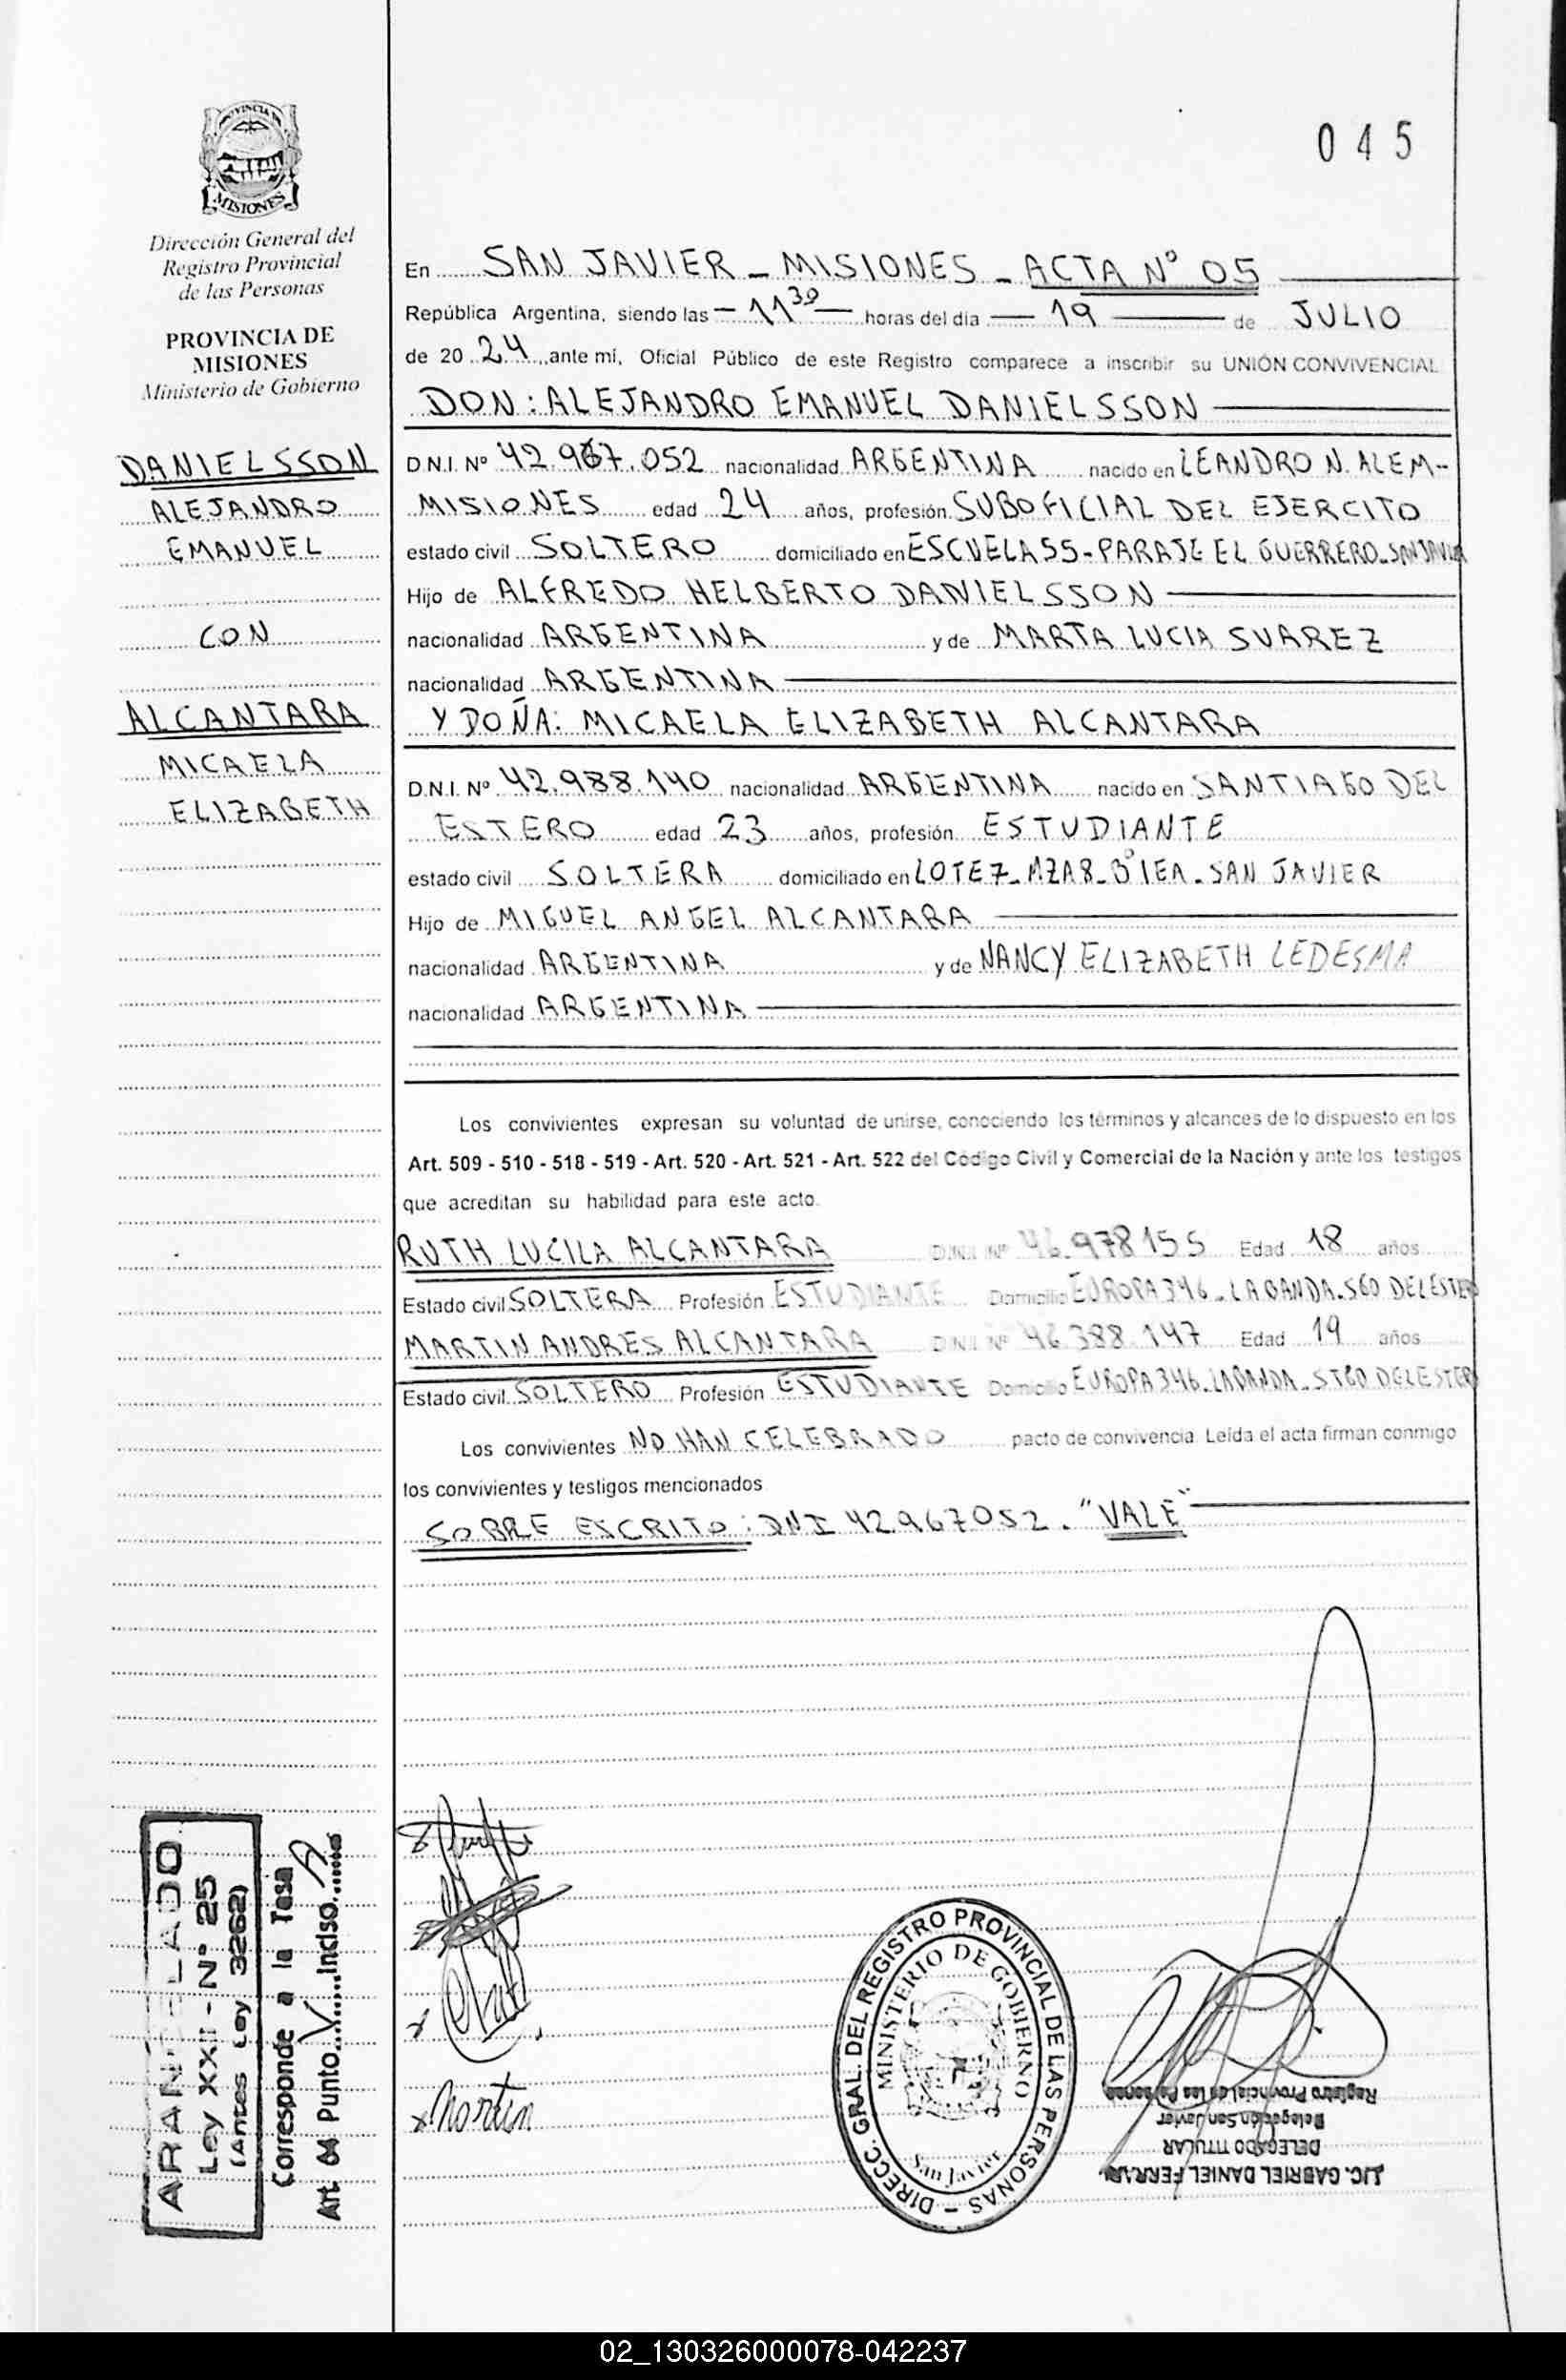 045
PROVINCIA DE
MISIONES
Dirección General del
Registro Provincial
de las Personas
PROVINCIA DE
MISIONES
Ministerio de Gobierno
DANIELSSON
ALEJANDRO
EMANUEL
CON
ALCANTARA
MICAELA
ELIZABETH
En SAN JAVIER - MISIONES - ACTA N° 05
República Argentina, siendo las - 11 30 - horas del día - 19 - de JULIO
de 20 24 ante mí, Oficial Público de este Registro comparece a inscribir su UNIÓN CONVIVENCIAL
DON: ALEJANDRO EMANUEL DANIELSSON
D.N.I. Nº 42.967.052 nacionalidad ARGENTINA nacido en LEANDRO N. ALEM-
MISIONES edad 24 años, profesión SUBOFICIAL DEL EJERCITO
estado civil SOLTERO domiciliado en ESCUELA 55-PARAJE EL GUERRERO-SAN JAVIER
Hijo de ALFREDO HELBERTO DANIELSSON
nacionalidad ARGENTINA y de MARTA LUCIA SUAREZ
nacionalidad ARGENTINA
Y DOÑA: MICAELA ELIZABETH ALCANTARA
D.N.I. Nº 42.988.140 nacionalidad ARGENTINA nacido en SANTIAGO DEL
ESTERO edad 23 años, profesión ESTUDIANTE
estado civil SOLTERA domiciliado en LOTE 7-MZA 8-B° IEA-SAN JAVIER
Hijo de MIGUEL ANGEL ALCANTARA
nacionalidad ARGENTINA y de NANCY ELIZABETH LEDESMA
nacionalidad ARGENTINA
Los convivientes expresan su voluntad de unirse, conociendo los términos y alcances de lo dispuesto en los
Art. 509 - 510 - 518 - 519 - Art. 520 - Art. 521 - Art. 522 del Código Civil y Comercial de la Nación y ante los testigos
que acreditan su habilidad para este acto.
RUTH LUCILA ALCANTARA D.N.I. Nº 46.978155 Edad 18 años
Estado civil SOLTERA Profesión ESTUDIANTE Domicilio EUROPA 346-LA BANDA-SGO DEL ESTERO
MARTIN ANDRES ALCANTARA D.N.I. Nº 46.388.147 Edad 19 años
Estado civil SOLTERO Profesión ESTUDIANTE Domicilio EUROPA 346-LA BANDA-STGO DEL ESTERO
Los convivientes NO HAN CELEBRADO pacto de convivencia. Leída el acta firman conmigo
los convivientes y testigos mencionados
SOBRE ESCRITO: DNI 42967052. "VALE"
Martin
ARANCELADO
Ley XXII - N° 25
(Antes Ley 3262)
Corresponde a la Tasa
Art. 64 Punto V Inciso A
DIRECC. GRAL. DEL REGISTRO PROVINCIAL DE LAS PERSONAS -
MINISTERIO DE GOBIERNO
San Javier
LIC. GABRIEL DANIEL FERRARI
DELEGADO TITULAR
Delegación San Javier
Registro Provincial de las Personas
02_130326000078-042237